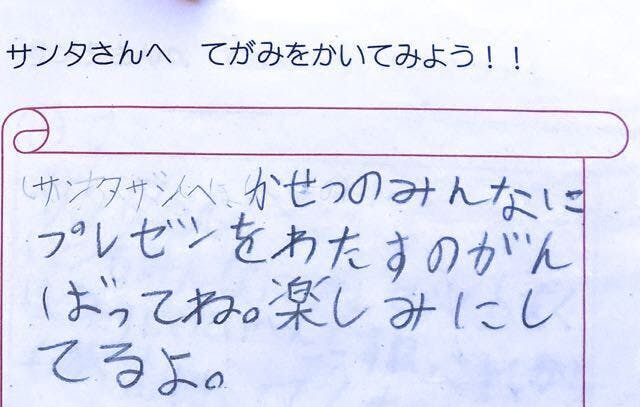 サンタさんへ　てがみをかいてみよう！！
サンタサンへ かせつのみんなに
プレゼンをわたすのがん
ばってね。楽しみにし
てるよ。